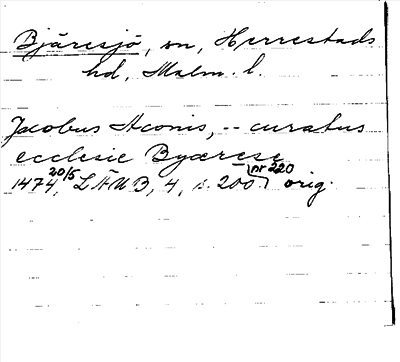 Bjäresjö, sn, Herrestads
hd, Malm. l.
Jacobus Aconis, -- curatus
ecclesie Byærese
1474 20/5, LÄUB, 4, s. 200 (nr 220) orig.